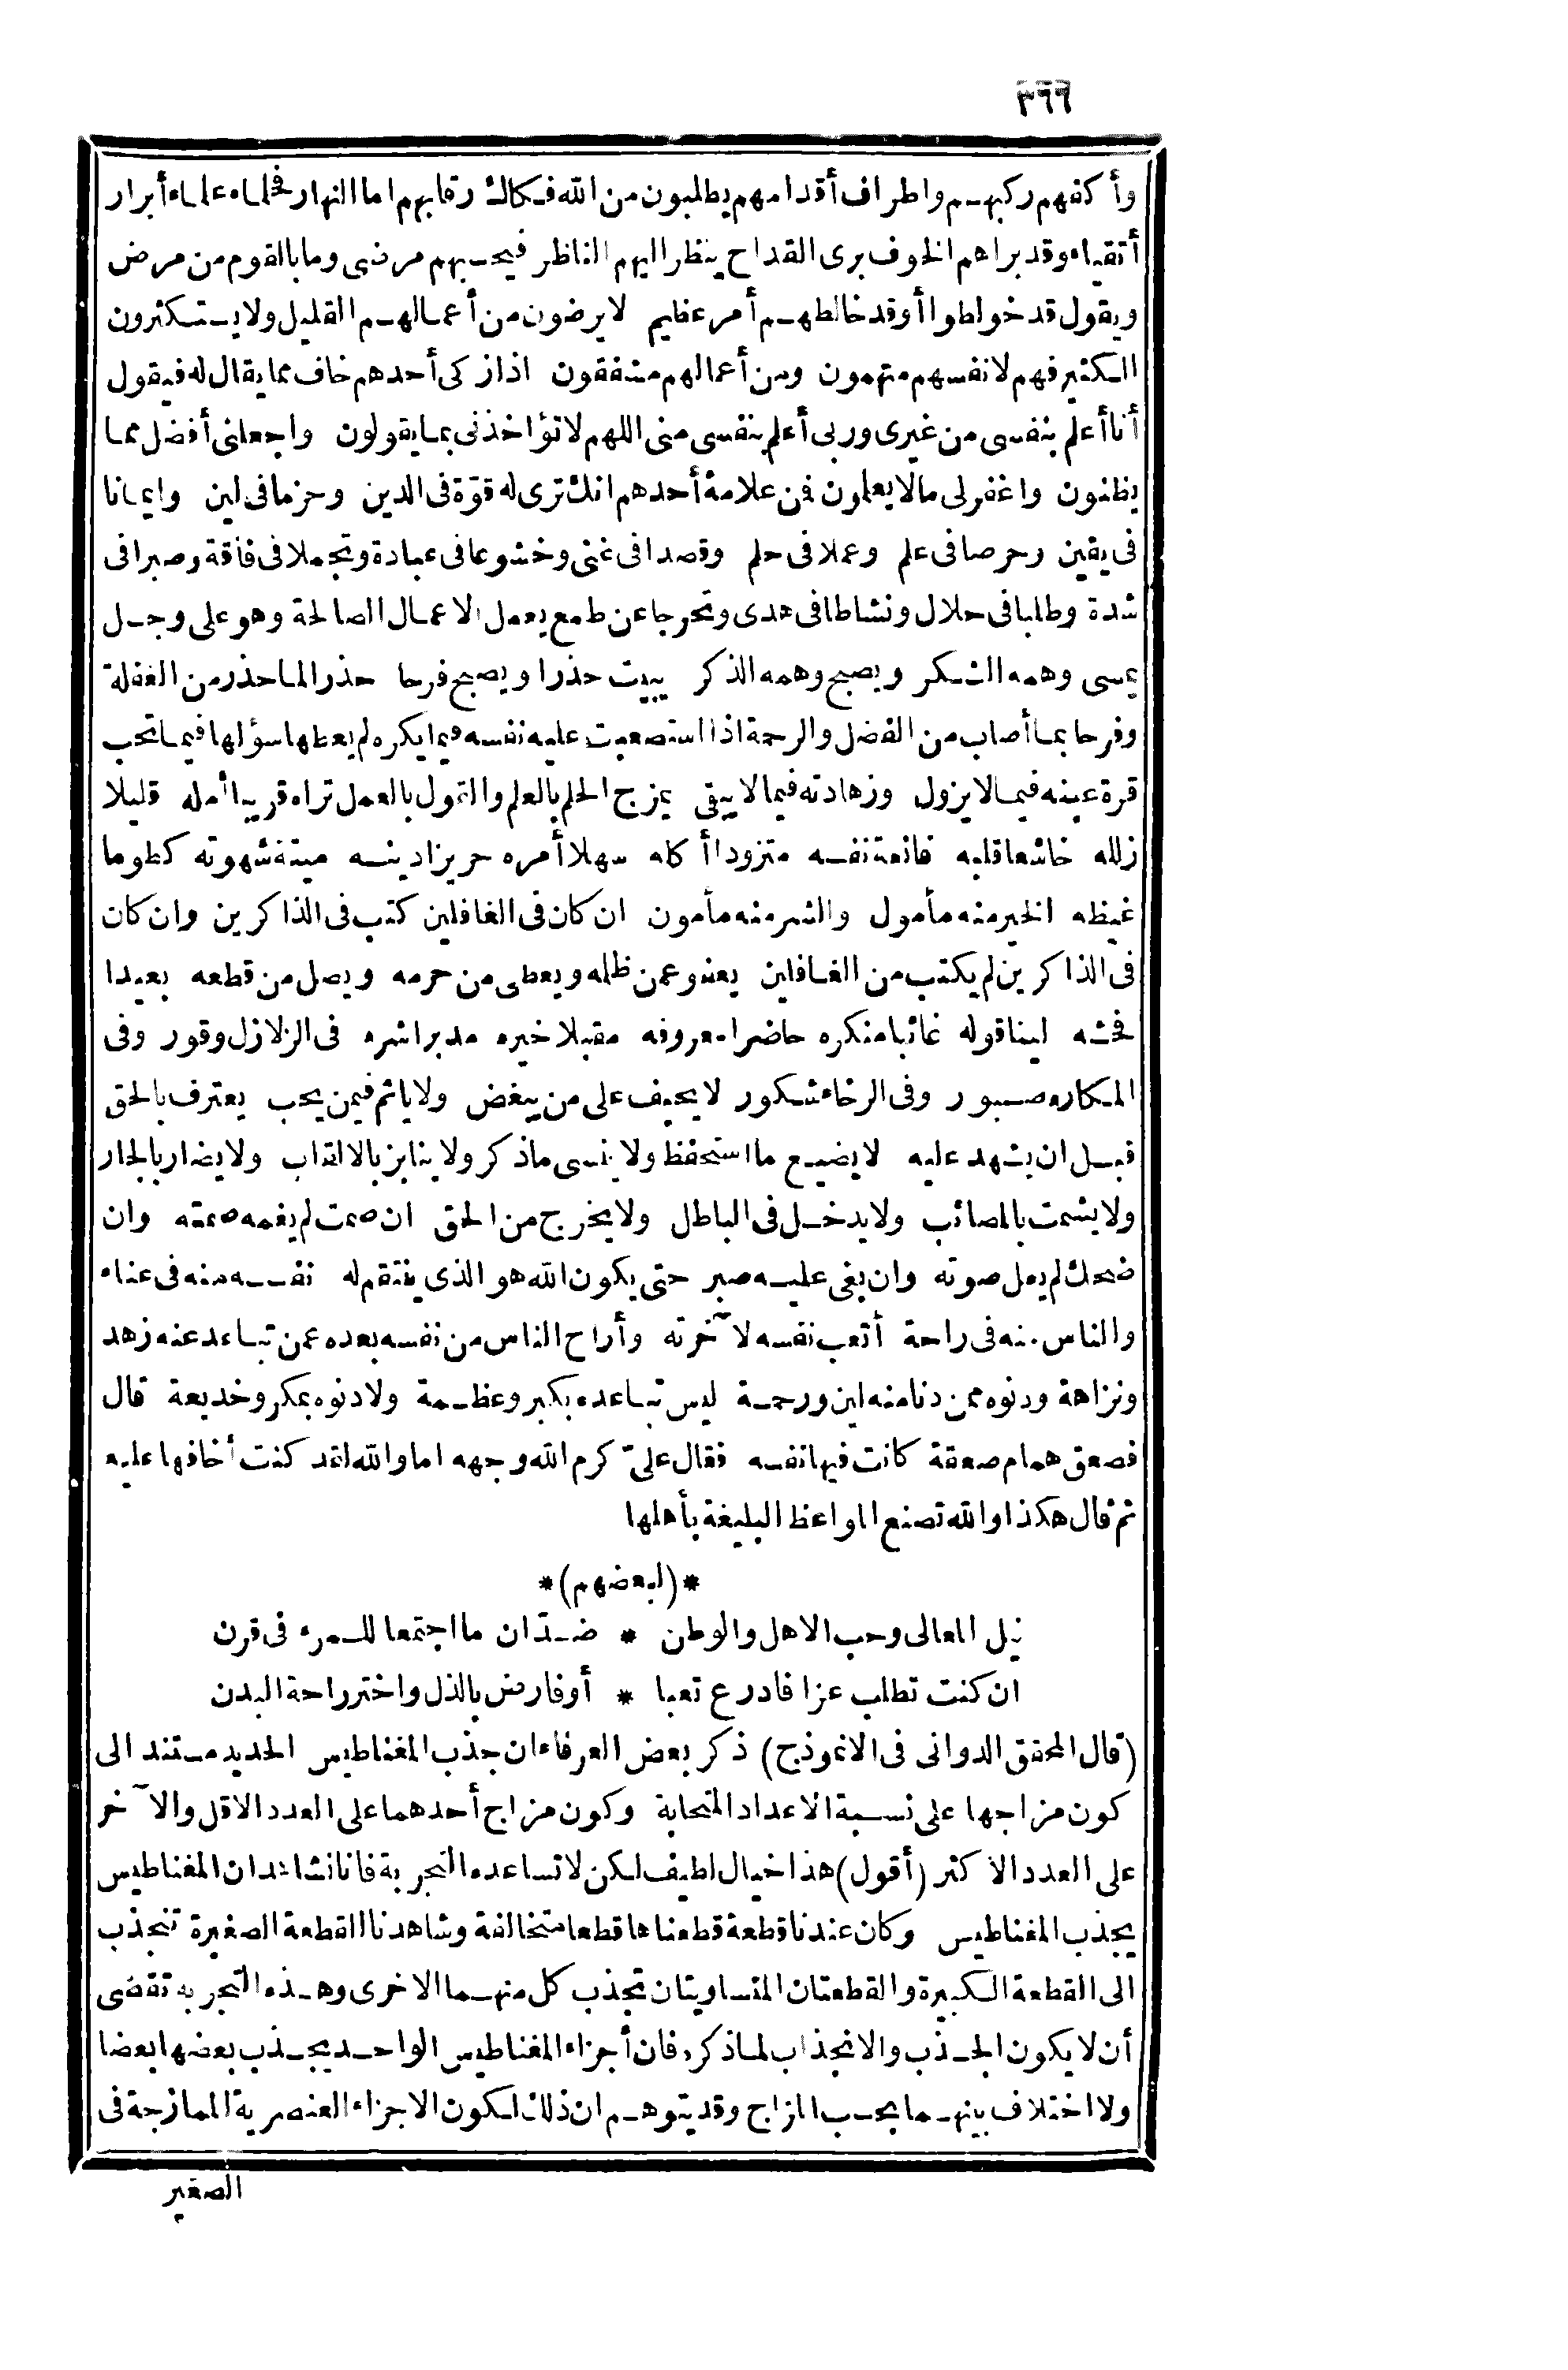 ٣٦٦
وأكفهم ركبهم واطراف أقدامهم يطلبون من الله فكاك رقابهم اما النهار فحلماء علماء أبرار
أتقياء وقد براهم الخوف برى القداح ينظر اليهم الناظر فيحسبهم مرضى وما بالقوم من مرض
ويقول قد خولطوا أوقد خالطهم أمر عظيم لا يرضون من أعمالهم القليل ولا يستكثرون
الكثير فهم لانفسهم متهمون ومن أعمالهم مشفقون اذا زكى أحدهم خاف مما يقال له فيقول
أنا أعلم بنفسى من غيرى وربى أعلم بنفسى منى اللهم لا تؤاخذنى بما يقولون واجعلنى أفضل مما
يظنون واغفر لى ما لا يعلمون فمن علامة أحدهم انك ترى له قوّة فى الدين وحزما فى لين وايمانا
فى يقين وحرصا فى علم وعملا فى حلم وقصدا فى غنى وخشوعا فى عبادة وتجملا فى فاقة وصبرا فى
شدة وطلبا فى حلال ونشاطا فى هدى وتحرجا عن طمع يعمل الاعمال الصالحة وهو على وجل
يمسى وهمه الشكر ويصبح وهمه الذكر يبيت حذرا ويصبح فرحا حذر الما حذر من الغفلة
وفرحا بما أصاب من الفضل والرحمة اذا استصعبت عليه نفسه فيما يكره لم يعطها سؤلها فيما تحب
قرة عينه فيما لا يزول وزهادته فيما لا يبقى يمزج الحلم بالعلم والقول بالعمل تراه قريبا أمله قليلا
زلله خاشعا قلبه قانعة نفسه متزودا أكله سهلا أمره حريزا دينه ميتة شهوته كظوما
غيظه الخير منه مأمول والشر منه مأمون ان كان فى الغافلين كتب فى الذاكرين وان كان
فى الذاكرين لم يكتب من الغافلين يعفو عمن ظلمه ويعطى من حرمه ويصل من قطعه بعيدا
فحشه لينا قوله غائبا منكره حاضرا معروفه مقبلا خيره مدبرا شره فى الزلازل وقور وفى
المكاره صبور وفى الرخاء شكور لا يحيف على من يبغض ولا ياثم فيمن يحب يعترف بالحق
قبل ان يشهد عليه لا يضيع ما استحفظ ولا ينسى ما ذكر ولا ينابز بالالقاب ولا يضار بالجار
ولا يشمت بالمصائب ولا يدخل فى الباطل ولا يخرج من الحق ان صمت لم يغمه صمته وان
ضحك لم يعل صوته وان بغى عليه صبر حتى يكون الله هو الذى ينتقم له نفسه منه فى عناء
والناس منه فى راحة أتعب نفسه لآخرته وأراح الناس من نفسه بعده عمن تباعد عنه زهد
ونزاهة ودنوه ممن دنا منه لين ورحمة ليس تباعده بكبر وعظمة ولا دنوه بمكر وخديعة قال
فصعق همام صعقة كانت فيها نفسه فقال علىّ كرم الله وجهه اما والله لقد كنت أخافها عليه
ثم قال هكذا والله تصنع المواعظ البليغة بأهلها
*(لبعضهم)*
نيل المعالى وحب الاهل والوطن * ضدّان ما اجتمعا للمرء فى قرن
ان كنت تطلب عزا فادرع تعبا * أوفارض بالذل واختر راحة البدن
(قال المحقق الدوانى فى الانموذج) ذكر بعض العرفاء ان جذب المغناطيس الحديد مستند الى
كون مزاجها على نسبة الاعداد المتحابة وكون مزاج أحدهما على العدد الاقل والآخر
على العدد الاكثر (أقول) هذا خيال لطيف لكن لا تساعده التجربة فانا نشاهد ان المغناطيس
يجذب المغناطيس وكان عندنا قطعة قطعناها قطعا متخالفة وشاهدنا القطعة الصغيرة تنجذب
الى القطعة الكبيرة والقطعتان المتساويتان تجذب كل منهما الاخرى وهذه التجربة تقتضى
أن لا يكون الجذب والانجذاب لما ذكره فان أجزاء المغناطيس الواحد يجذب بعضها بعضا
ولا اختلاف بينهما بحسب المزاج وقد يتوهم ان ذلك لكون الاجزاء العنصرية الممازجة فى
الصغير